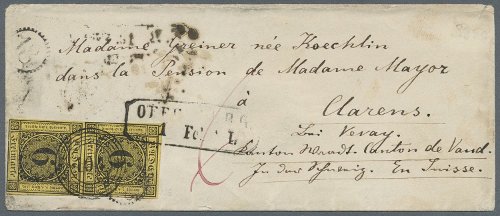 Madame Greiner née Koechlin
dans la Pension de Madame Mayor
à
Clarens.
bei Vevay.
Canton Waadt. Canton de Vaud.
In der Schweiz. En Suisse.
OFF
1 Feb
6 6